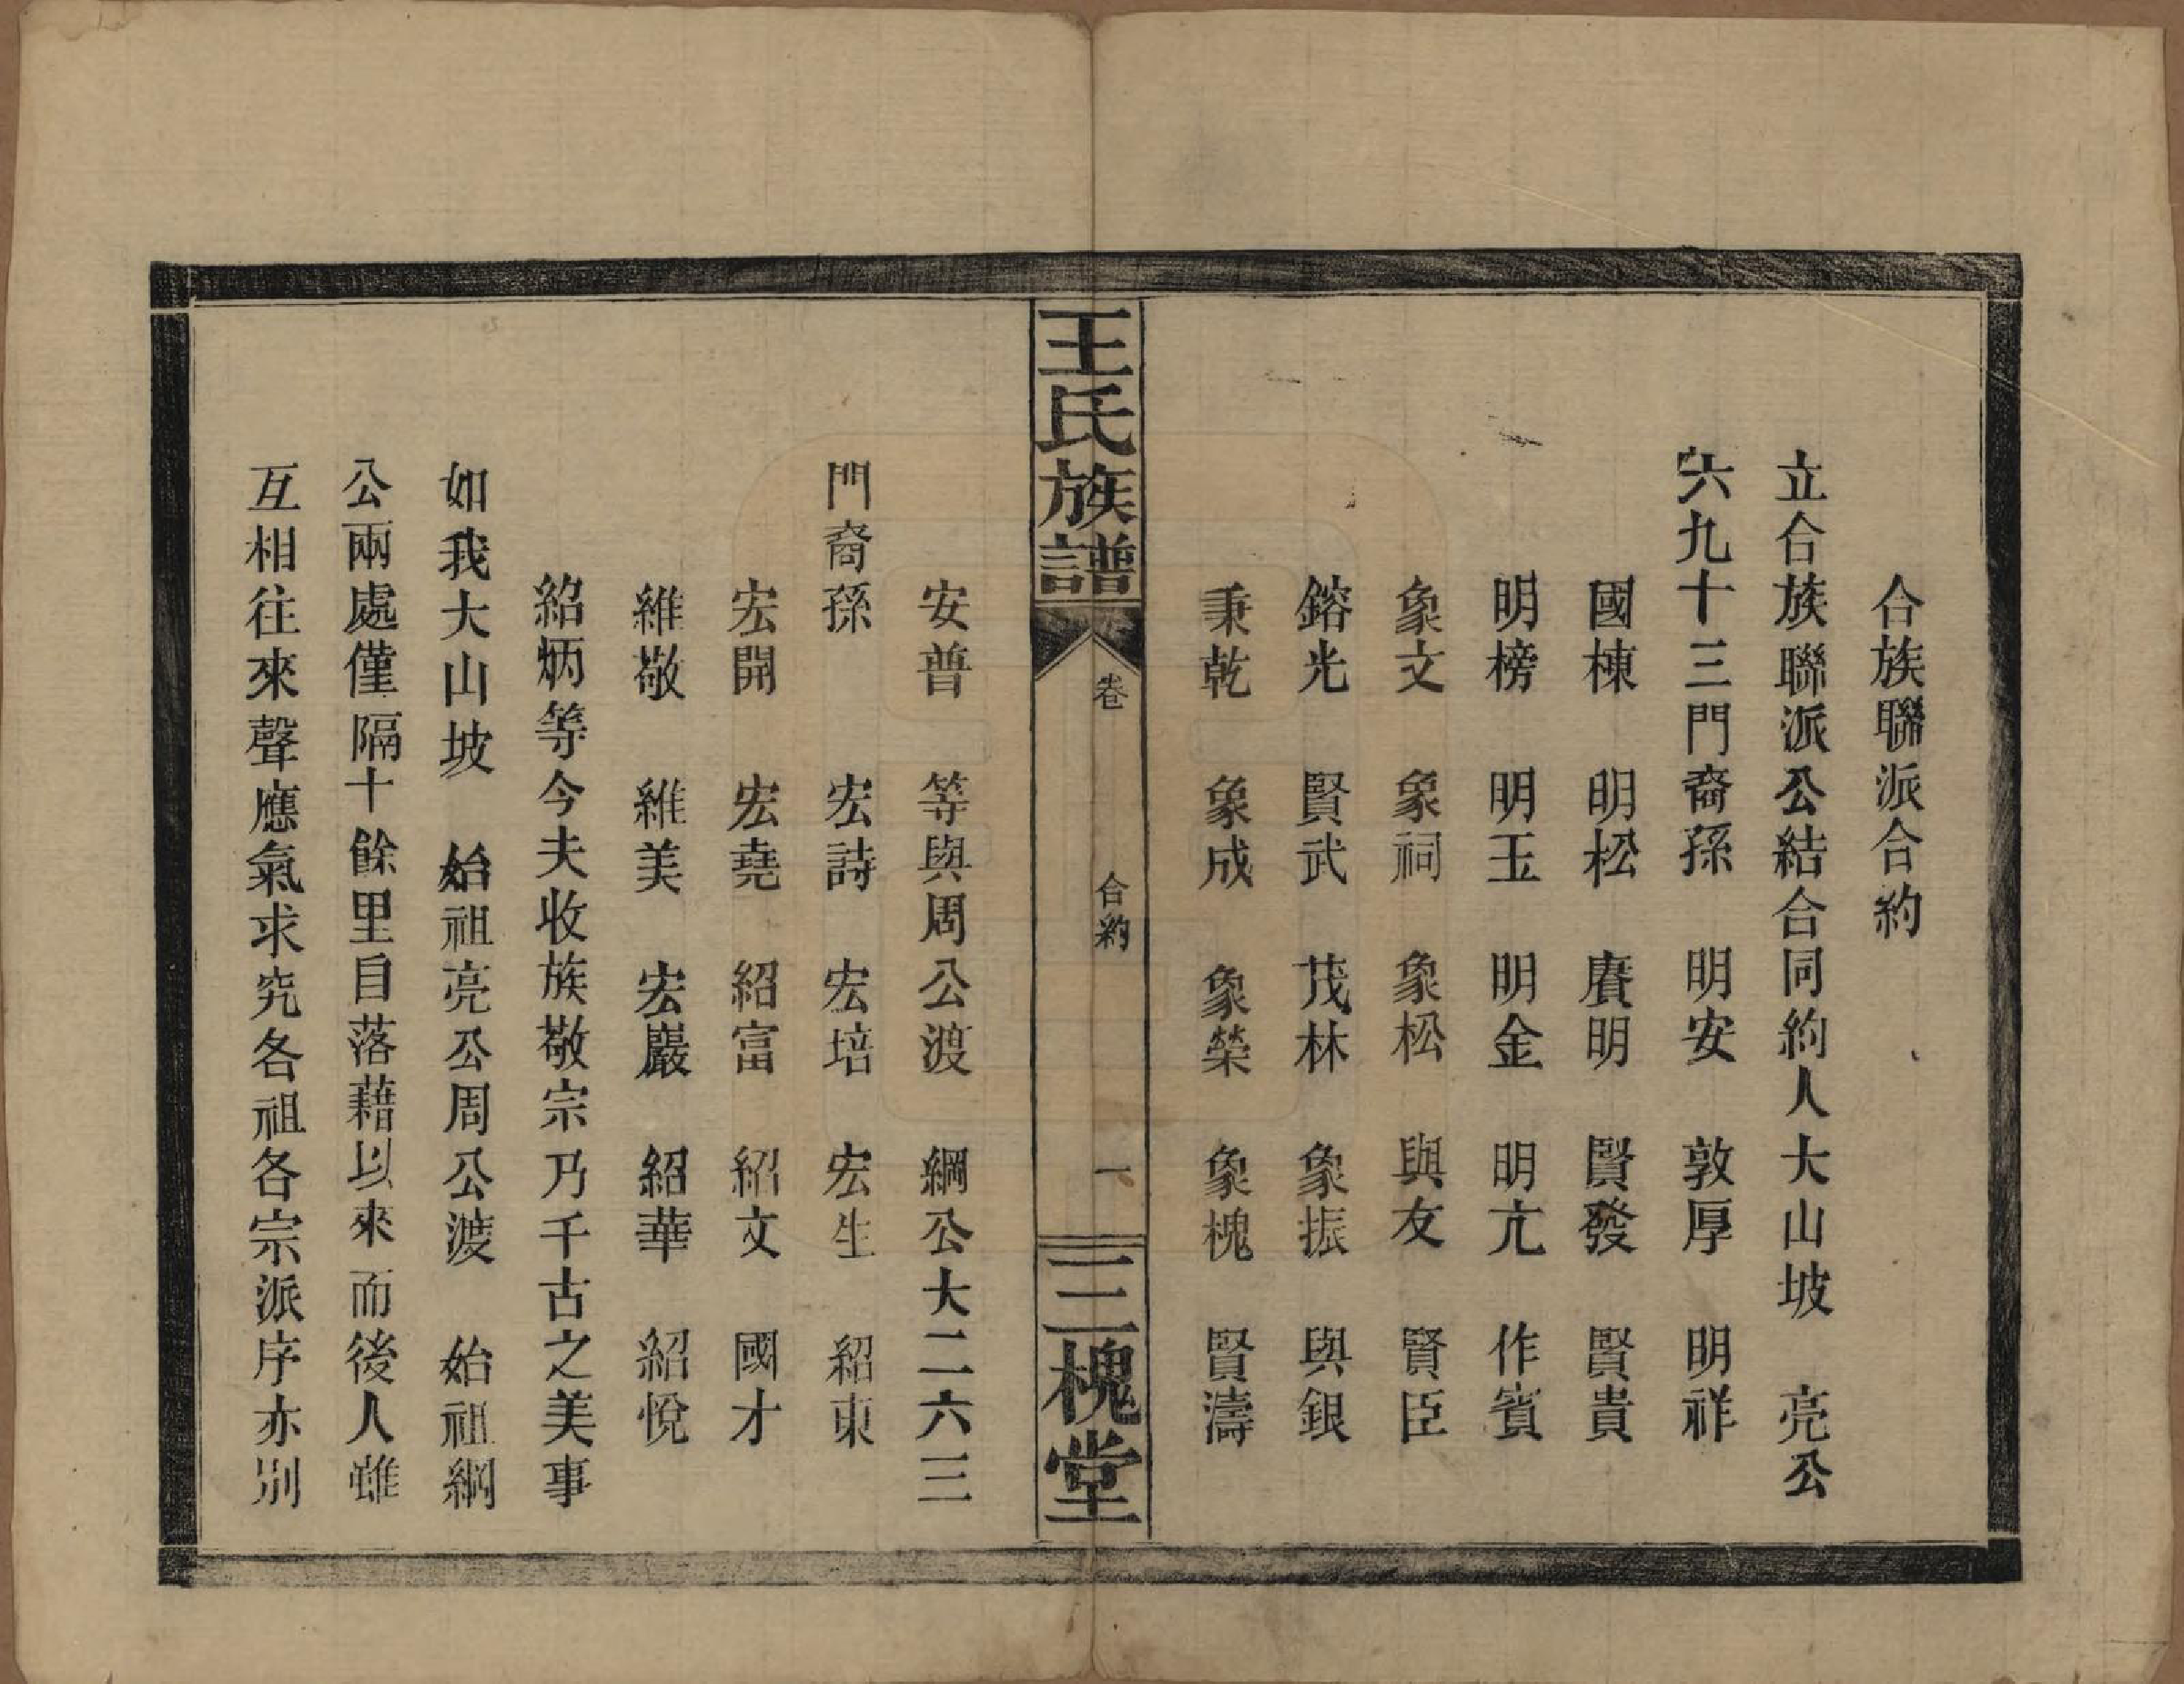 合族聯派合約
立合族聯派公結合同約人大山坡 亮公
六九十三門裔孫 明安 敦厚 明祥
國棟 明松 賡明 賢發 賢貴
明榜 明玉 明金 明亢 作賓
象文 象祠 象松 與友 賢臣
鎔光 賢武 茂林 象振 與銀
秉乾 象成 象榮 象槐 賢濤
王氏族譜 卷 合約 一 三槐堂
安普 等與周公渡 綱公大二六三
門裔孫 宏詩 宏培 宏生 紹東
宏開 宏堯 紹富 紹文 國才
維敬 維美 宏巖 紹華 紹悅
紹炳等今夫收族敬宗乃千古之美事
如我大山坡 始祖亮公周公渡 始祖綱
公兩處僅隔十餘里自落藉以來而後人雖
互相往來聲應氣求究各祖各宗派序亦別